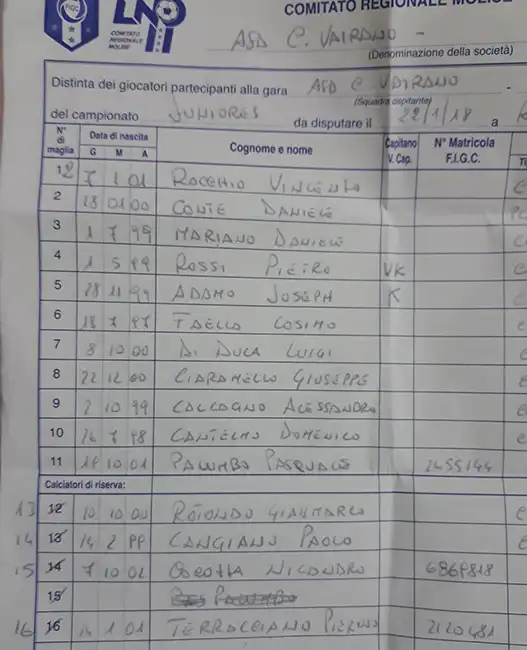 FIGC
LND
COMITATO REGIONALE MOLISE
COMITATO REGIONALE MOLISE
ASD C. VAIRANO -
(Denominazione della società)
Distinta dei giocatori partecipanti alla gara ASD C VAIRANO -
(Squadra ospitante)
del campionato JUNIORES da disputare il 22/1/18 a
N° di maglia Data di nascita Cognome e nome Capitano V. Cap. N° Matricola F.I.G.C.
G M A
12 7 1 01 ROCCHIO VINCENZO
2 18 01 00 CONTE DANIELE
3 1 7 99 MARIANO DANIELE
4 1 5 99 ROSSI PIETRO VK
5 28 11 99 ADAMO JOSEPH K
6 18 7 97 TAELLO COSIMO
7 8 10 00 DI DUCA LUIGI
8 22 12 00 CIARAMELLO GIUSEPPE
9 2 10 99 CALCAGNO ALESSANDRO
10 26 7 98 CANTELMO DOMENICO
11 18 10 01 PALUMBO PASQUALE 2455144
Calciatori di riserva:
13 12 10 10 00 ROTONDO GIANMARCO
14 13 14 2 99 CANGIANO PAOLO
15 14 7 10 02 NICANDRO 6869818
15 PALUMBO
16 16 14 1 01 TERRACCIANO 2120481